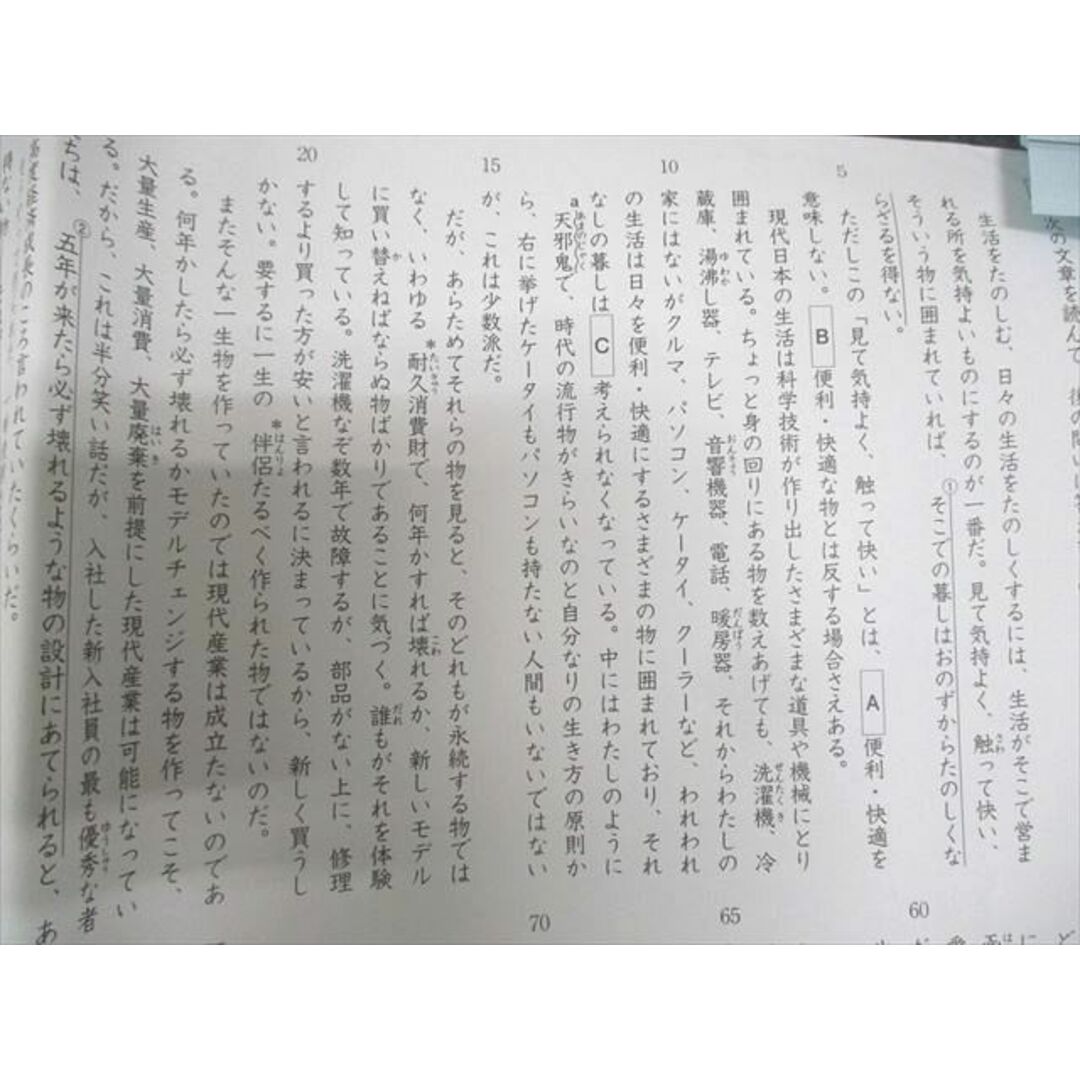 次の文章を読んで、後の問いに
生活をたのしむ、日々の生活をたのしくするには、生活がそこで営ま
れる所を気持よいものにするのが一番だ。見て気持よく、触って快い、
そういう物に囲まれていれば、①そこでの暮しはおのずからたのしくな
らざるを得ない。
ただしこの「見て気持よく、触って快い」とは、A便利・快適を
意味しない。B便利・快適な物とは反する場合さえある。
現代日本の生活は科学技術が作り出したさまざまな道具や機械にとり
囲まれている。ちょっと身の回りにある物を数えあげても、洗濯機、冷
蔵庫、湯沸し器、テレビ、音響機器、電話、暖房器、それからわたしの
家にはないがクルマ、パソコン、ケータイ、クーラーなど、われわれ
の生活は日々を便利・快適にするさまざまの物に囲まれており、それ
なしの暮しはC考えられなくなっている。中にはわたしのように
a天邪鬼で、時代の流行物がきらいなのと自分なりの生き方の原則か
ら、右に挙げたケータイもパソコンも持たない人間もいないではない
が、これは少数派だ。
だが、あらためてそれらの物を見ると、そのどれもが永続する物では
なく、いわゆる*耐久消費財で、何年かすれば壊れるか、新しいモデル
に買い替えねばならぬ物ばかりであることに気づく。誰もがそれを体験
して知っている。洗濯機なぞ数年で故障するが、部品がない上に、修理
するより買った方が安いと言われるに決まっているから、新しく買うし
かない。要するに一生の*伴侶たるべく作られた物ではないのだ。
またそんな一生物を作っていたのでは現代産業は成立たないのであ
る。何年かしたら必ず壊れるかモデルチェンジする物を作ってこそ、
大量生産、大量消費、大量廃棄を前提にした現代産業は可能になってい
る。だから、これは半分笑い話だが、入社した新入社員の最も優秀な者
ちは、②五年が来たら必ず壊れるような物の設計にあてられると、あ
のころ言われていたくらいだ。
5
10
15
20
60
65
70